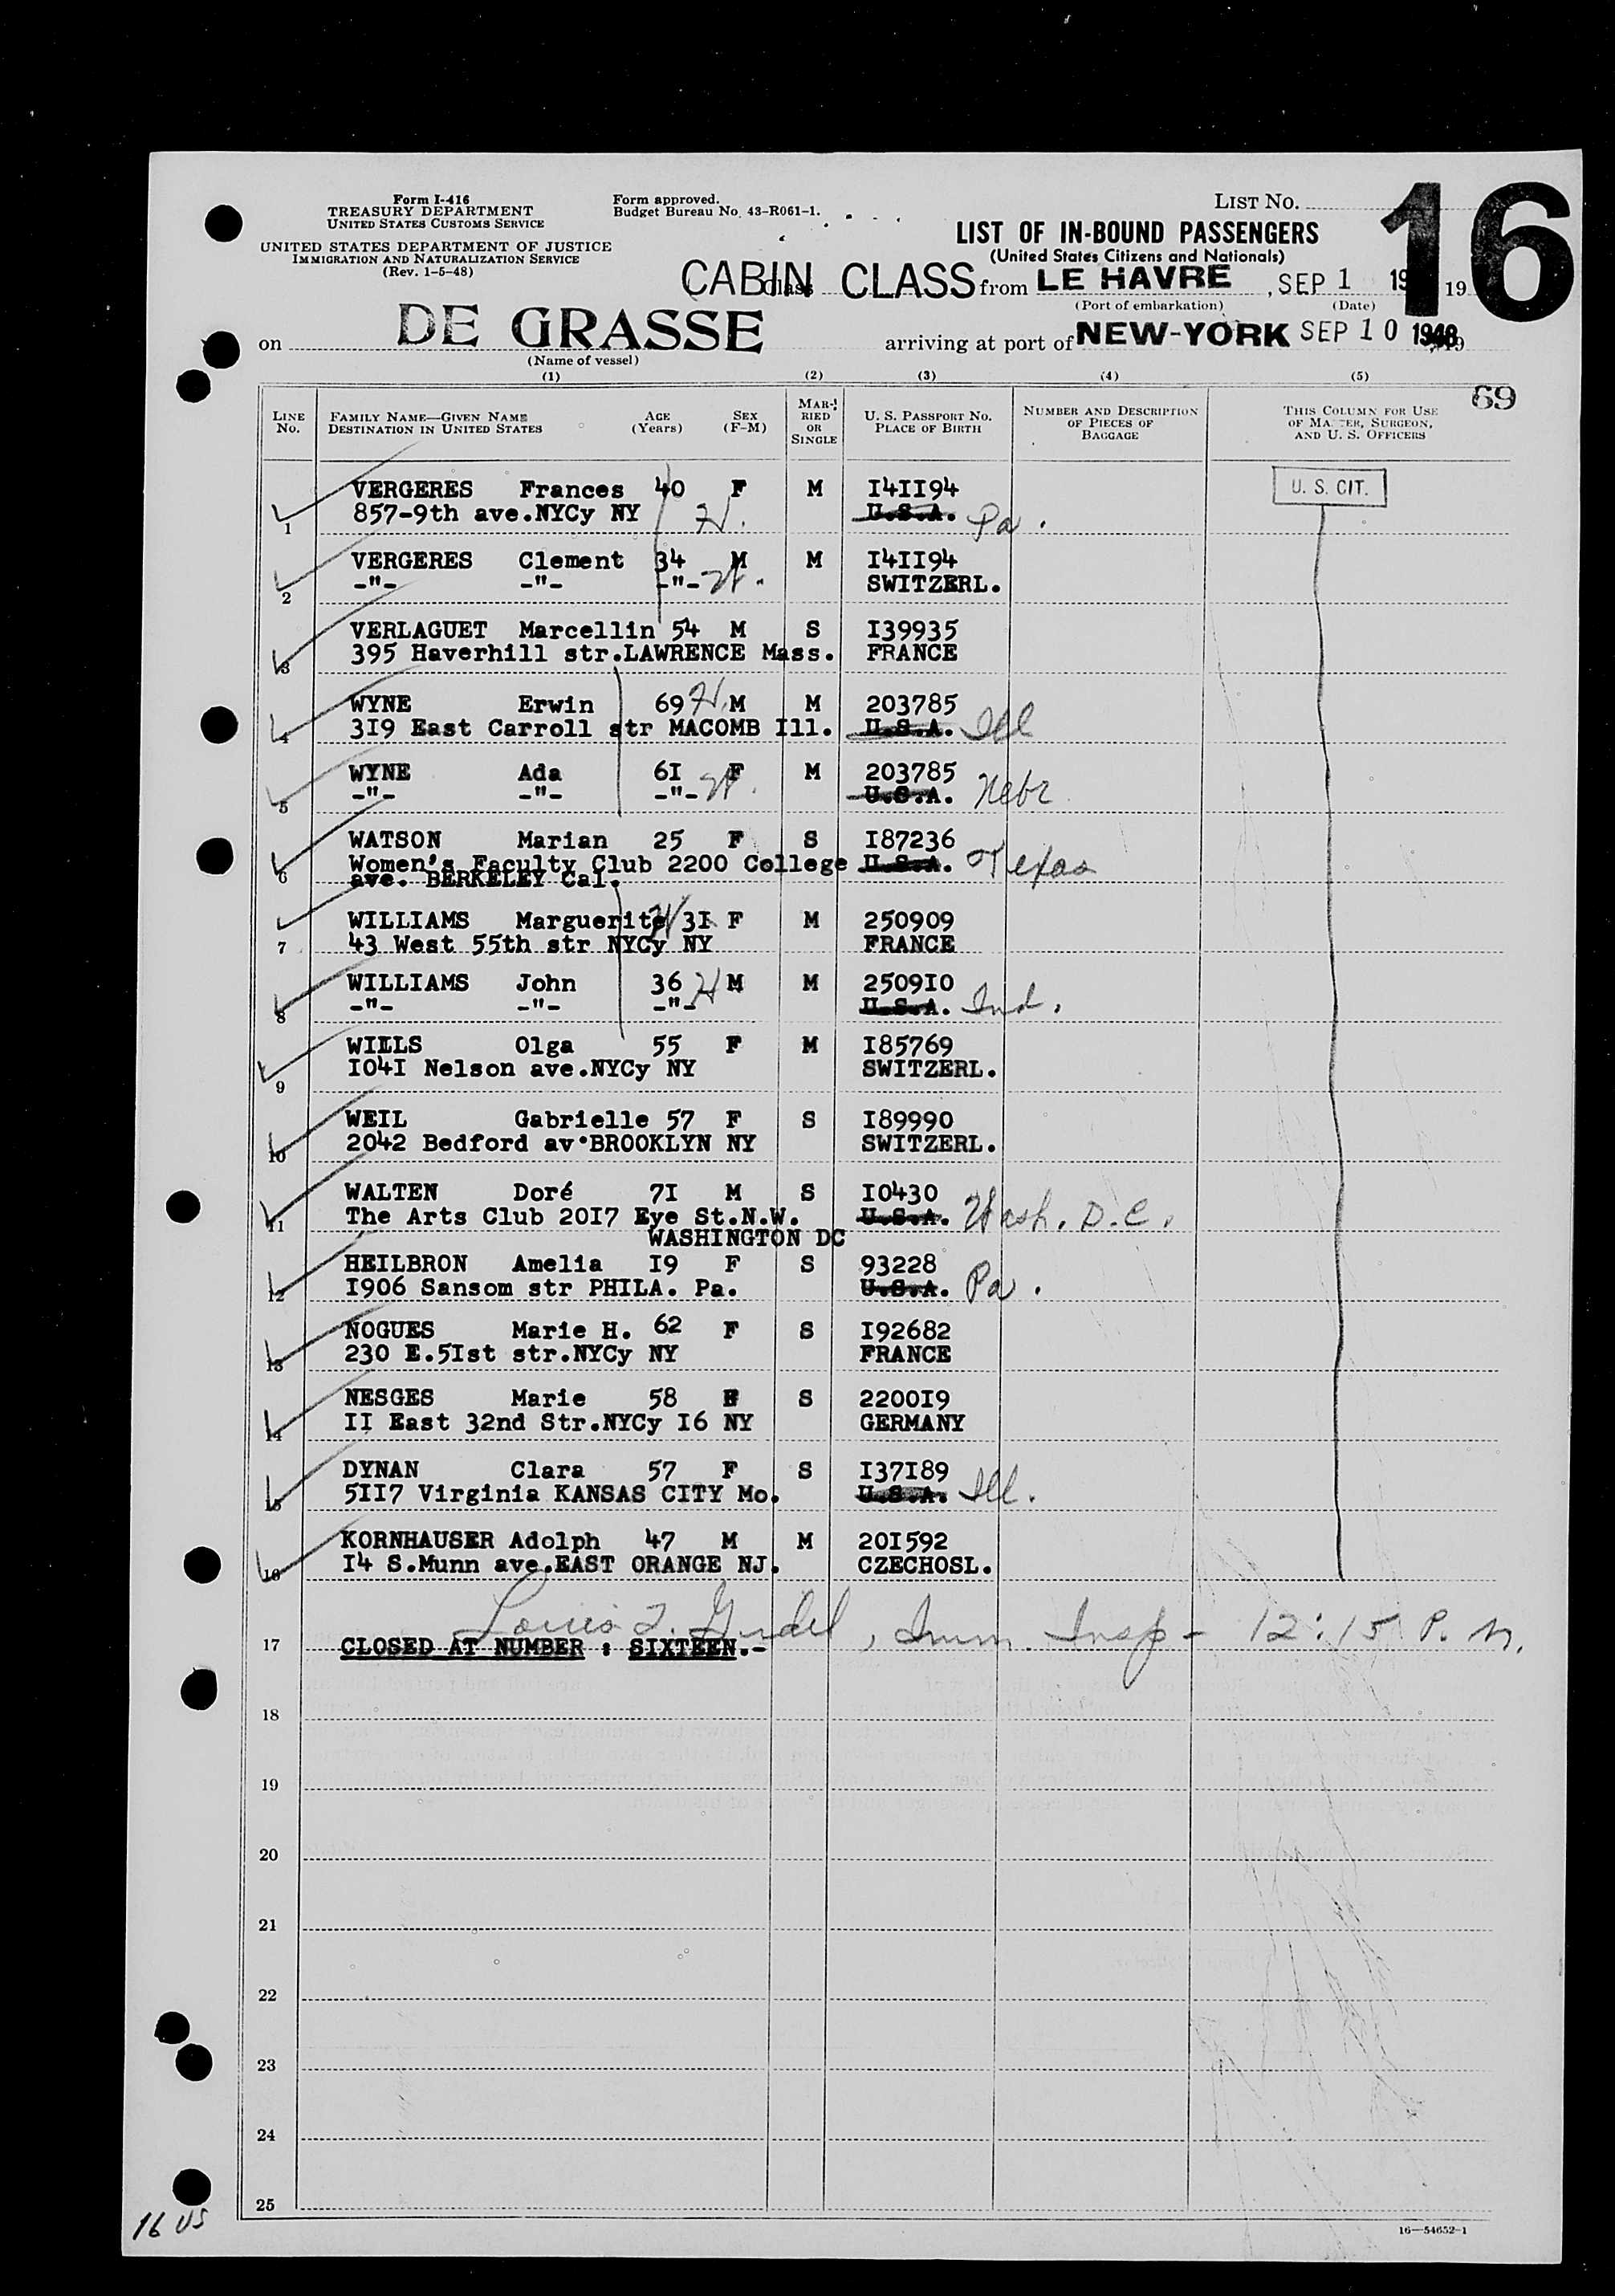 Form I-416
TREASURY DEPARTMENT
UNITED STATES CUSTOMS SERVICE
UNITED STATES DEPARTMENT OF JUSTICE
IMMIGRATION AND NATURALIZATION SERVICE
(Rev. 1-5-48)
Form approved.
Budget Bureau No. 43-R061-1.
LIST NO.
16
LIST OF IN-BOUND PASSENGERS
(United States Citizens and Nationals)
CABIN CLASS from LE HAVRE, SEP 1 19 19
Class (Port of embarkation) (Date)
on DE GRASSE arriving at port of NEW-YORK SEP 10 1948
(Name of vessel)
(1) (2) (3) (4) (5)
69
LINE No. FAMILY NAME—GIVEN NAME DESTINATION IN UNITED STATES AGE (Years) SEX (F-M) MARRIED OR SINGLE U. S. PASSPORT NO. PLACE OF BIRTH NUMBER AND DESCRIPTION OF PIECES OF BAGGAGE THIS COLUMN FOR USE OF MASTER, SURGEON, AND U. S. OFFICERS
VERGERES Frances 40 F M I4II94 U. S. CIT.
1 857-9th ave.NYCy NY H. U.S.A. Pa.
VERGERES Clement 34 M M I4II94
2 -"- -"- -"- W. SWITZERL.
VERLAGUET Marcellin 54 M S I39935
3 395 Haverhill str.LAWRENCE Mass. FRANCE
WYNE Erwin 69 H. M M 203785
4 3I9 East Carroll str MACOMB Ill. U.S.A. Ill
WYNE Ada 6I F M 203785
5 -"- -"- -"- W. U.S.A. Nebr
WATSON Marian 25 F S I87236
6 Women's Faculty Club 2200 College U.S.A. Texas
ave. BERKELEY Cal.
WILLIAMS Marguerite W 3I F M 250909
7 43 West 55th str NYCy NY FRANCE
WILLIAMS John 36 H M M 2509I0
8 -"- -"- -"- U.S.A. Ind.
WILLS Olga 55 F M I85769
9 I04I Nelson ave.NYCy NY SWITZERL.
WEIL Gabrielle 57 F S I89990
10 2042 Bedford av.BROOKLYN NY SWITZERL.
WALTEN Doré 7I M S I0430
11 The Arts Club 20I7 Eye St.N.W. U.S.A. Wash. D.C.
WASHINGTON DC
HEILBRON Amelia I9 F S 93228
12 I906 Sansom str PHILA. Pa. U.S.A. Pa.
NOGUES Marie H. 62 F S I92682
13 230 E.5Ist str.NYCy NY FRANCE
NESGES Marie 58 F S 2200I9
14 II East 32nd Str.NYCy I6 NY GERMANY
DYNAN Clara 57 F S I37I89
15 5II7 Virginia KANSAS CITY Mo. U.S.A. Ill.
KORNHAUSER Adolph 47 M M 20I592
16 I4 S.Munn ave.EAST ORANGE NJ. CZECHOSL.
Louis, Imm. Insp - 12:15 P. M.
17 CLOSED AT NUMBER : SIXTEEN.-
18
19
20
21
22
23
24
25
16 US
16—54652-1